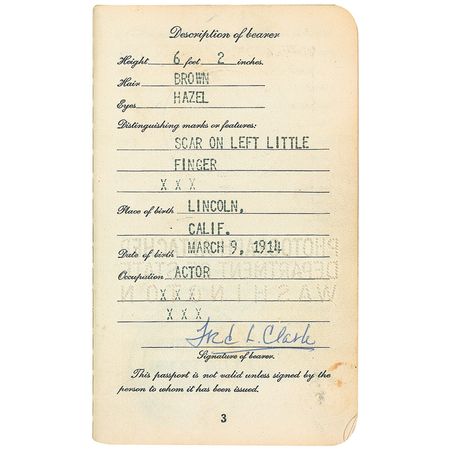 Description of bearer
Height 6 feet 2 inches.
Hair BROWN
Eyes HAZEL
Distinguishing marks or features:
SCAR ON LEFT LITTLE
FINGER
X X X
Place of birth LINCOLN,
CALIF.
Date of birth MARCH 9, 1914
PHOTOGRAPH ATTACHED
DEPARTMENT OF STATE
Occupation ACTOR
WASHINGTON
X X X
X X X
Fred L. Clark
Signature of bearer.
This passport is not valid unless signed by the
person to whom it has been issued.
3